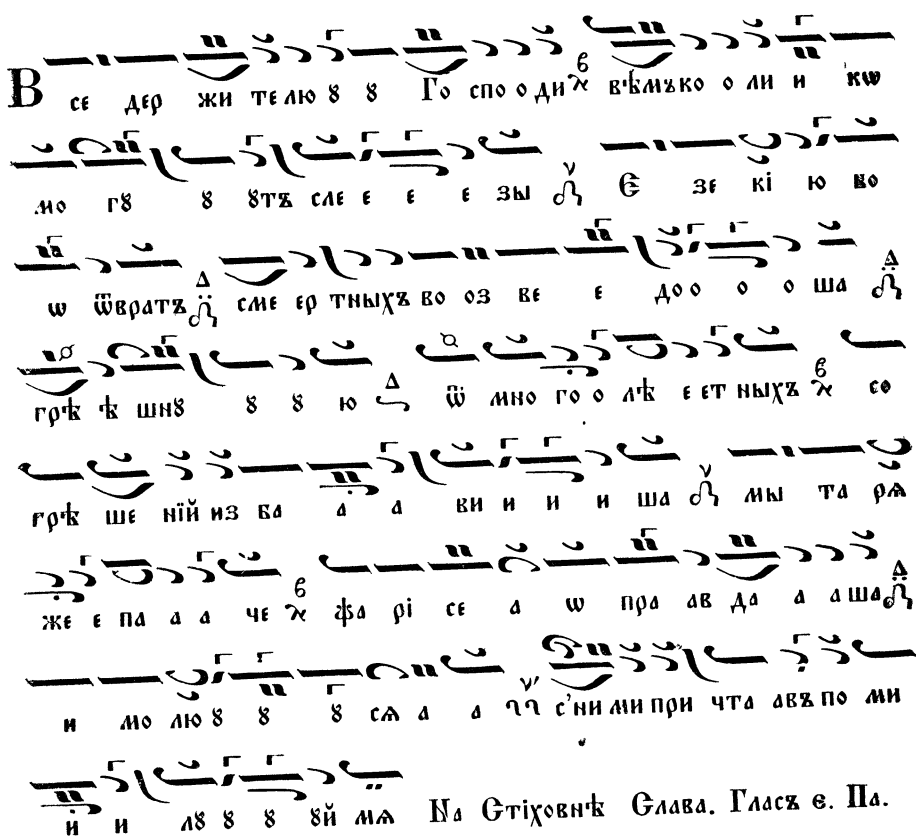 В се дер жи те лю ꙋ ꙋ Го спо о ди вѣмъ ко о ли и кѡ
мо гꙋ ꙋ ꙋтъ сле е е е зы Є зе кі ю во
ѡ ѿвратъ сме ер тныхъ во оз ве е до о о о ша
грѣ ѣ шнꙋ ꙋ ꙋ ю ѿ мно го о лѣ е ет ныхъ со
грѣ ше ній из ба а а ви и и и ша мы та рѧ
же е па а а че фа рі се а ѡ пра ав да а а ша
и мо лю ꙋ ꙋ ꙋ сѧ а а с’ни ми при чта авъ по ми
и и лꙋ ꙋ ꙋ ꙋй мѧ На Стіховнѣ Слава. Гласъ є. Па.